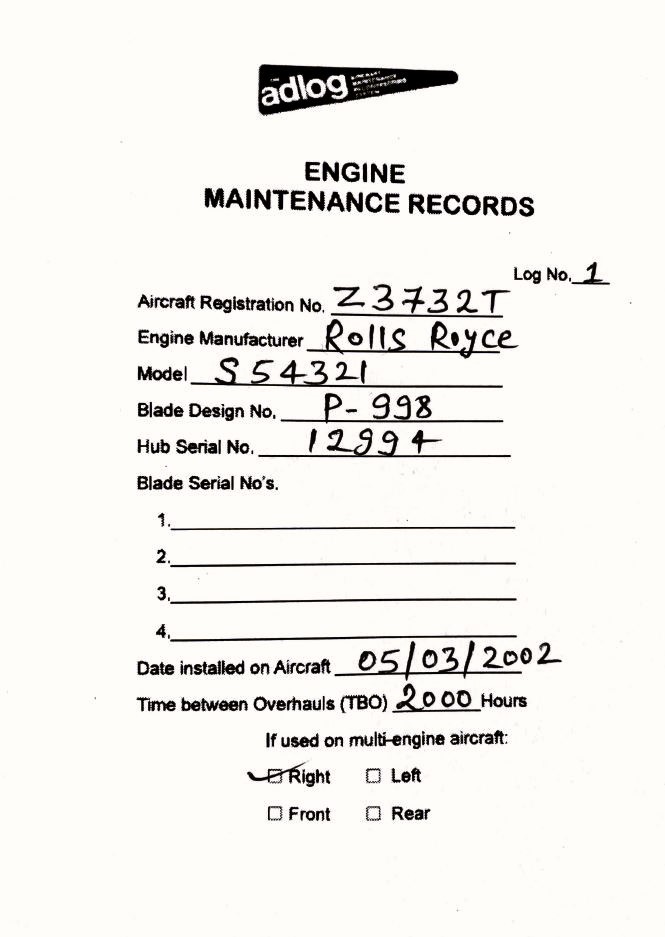 adlog
ENGINE
MAINTENANCE RECORDS
Log No. 1
Aircraft Registration No. Z3732T
Engine Manufacturer Rolls Royce
Model S54321
Blade Design No. P-998
Hub Serial No. 12994
Blade Serial No's.
1.
2.
3.
4.
Date installed on Aircraft 05/03/2002
Time between Overhauls (TBO) 2000 Hours
If used on multi-engine aircraft:
Right Left
Front Rear